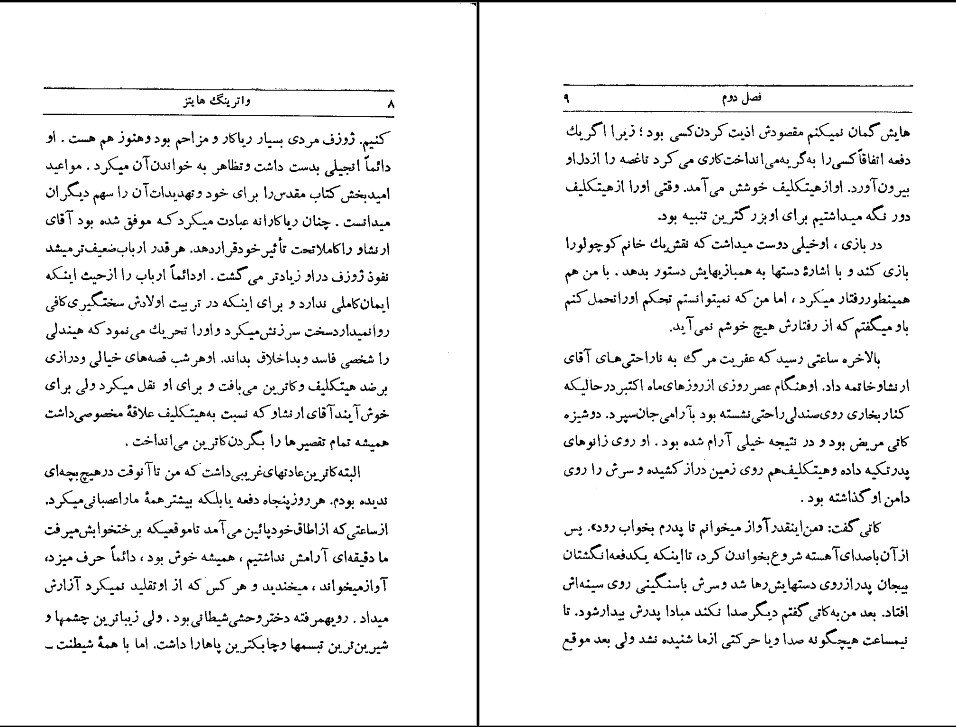 ۸ واترینگ هایتز
کنیم. ژوزف مردی بسیار ریاکار و مزاحم بود وهنوز هم هست . او
دائماً انجیلی بدست داشت وتظاهر به خواندن‌آن میکرد . مواعید
امیدبخش کتاب مقدس‌را برای خود وتهدیدات‌آن را سهم دیگران
میدانست . چنان ریاکارانه عبادت میکردکه موفق شده بود آقای
ارنشاو راکاملاتحت تأثیرخودقراردهد. هرقدر ارباب‌ضعیف‌ترمیشد
نفوذ ژوزف دراو زیادتر می‌گشت . اودائماً ارباب را ازحیث اینکه
ایمان‌کاملی ندارد و برای اینکه در تربیت اولادش سختگیری‌کافی
روانمیداردسخت سرزنش‌میکرد واورا تحریك می‌نمود که هیندلی
را شخصی فاسد وبداخلاق بداند. اوهرشب قصه‌های خیالی ودرازی
برضد هیتکلیف وکاترین می‌بافت و برای او نقل میکرد ولی برای
خوش‌آیندآقای ارنشاوکه نسبت به‌هیتکلیف علاقهٔ مخصوصی‌داشت
همیشه تمام تقصیرها را بگردن‌کاترین می‌انداخت .
البته‌کاترین‌عادتهای‌غریبی‌داشت که من تاآنوقت درهیچ‌بچه‌ای
ندیده بودم. هرروزپنجاه دفعه یابلکه بیشترهمهٔ ماراعصبانی‌میکرد.
ازساعتی‌که ازاطاق‌خودپائین می‌آمد تاموقعیکه برختخوابش‌میرفت
ما دقیقه‌ای آرامش نداشتیم ، همیشه خوش بود ، دائماً حرف میزد،
آوازمیخواند ، میخندید و هرکس که از اوتقلید نمیکرد آزارش
میداد . رویهمرفته دختروحشی‌شیطانی‌بود . ولی زیباترین چشمها و
شیرین‌ترین تبسمها وچابکترین پاهارا داشت. اما با همهٔ شیطنت ـ
فصل دوم ۹
هایش‌گمان نمیکنم مقصودش اذیت کردن‌کسی بود ؛ زیرا اگریك
دفعه اتفاقاًکسی‌را به‌گریه‌می‌انداخت‌کاری می‌کرد تاغصه را ازدل‌او
بیرون‌آورد. اوازهیتکلیف خوشش می‌آمد. وقتی اورا ازهیتکلیف
دور نگه میداشتیم برای او بزرگترین تنبیه بود.
در بازی ، اوخیلی دوست میداشت که نقش‌یك خانم کوچولورا
بازی کند و با اشارهٔ دستها به همبازیهایش دستور بدهد . با من هم
همینطوررفتار میکرد ، اما من که نمیتوانستم تحکم اوراتحمل کنم
باو میگفتم که از رفتارش هیچ خوشم نمی‌آید.
بالاخره ساعتی رسید که عفریت مرگ به ناراحتی‌های آقای
ارنشاوخاتمه داد. اوهنگام عصر روزی ازروزهای‌ماه اکتبر درحالیکه
کنار بخاری روی‌صندلی راحتی نشسته بود بآرامی‌جان‌سپرد. دوشیزه
کاتی مریض بود و در نتیجه خیلی آرام شده بود . او روی زانوهای
پدرتکیه داده وهیتکلیف‌هم روی زمین درازکشیده و سرش را روی
دامن اوگذاشته بود .
کاتی گفت: «من‌اینقدرآواز میخوانم تا پدرم بخواب رود». پس
ازآن باصدای‌آهسته شروع بخواندن کرد، تااینکه یکدفعه‌انگشتان
بیجان پدرازروی دستهایش‌رها شد وسرش باسنگینی روی سینه‌اش
افتاد. بعد من‌به‌کاتی گفتم دیگرصدا نکند مبادا پدرش بیدارشود. تا
نیمساعت هیچگونه صدا ویا حرکتی ازما شنیده نشد ولی بعد موقع